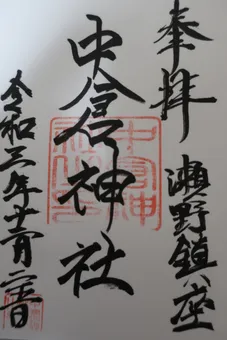 奉拝
瀬野鎮座
中倉神社
令和三年十二月二十二日